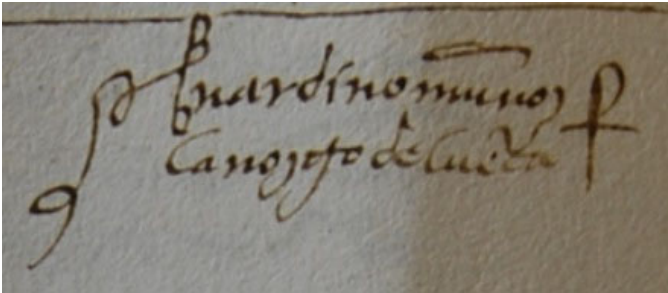 bernardino munoz
canonigo de cuenca